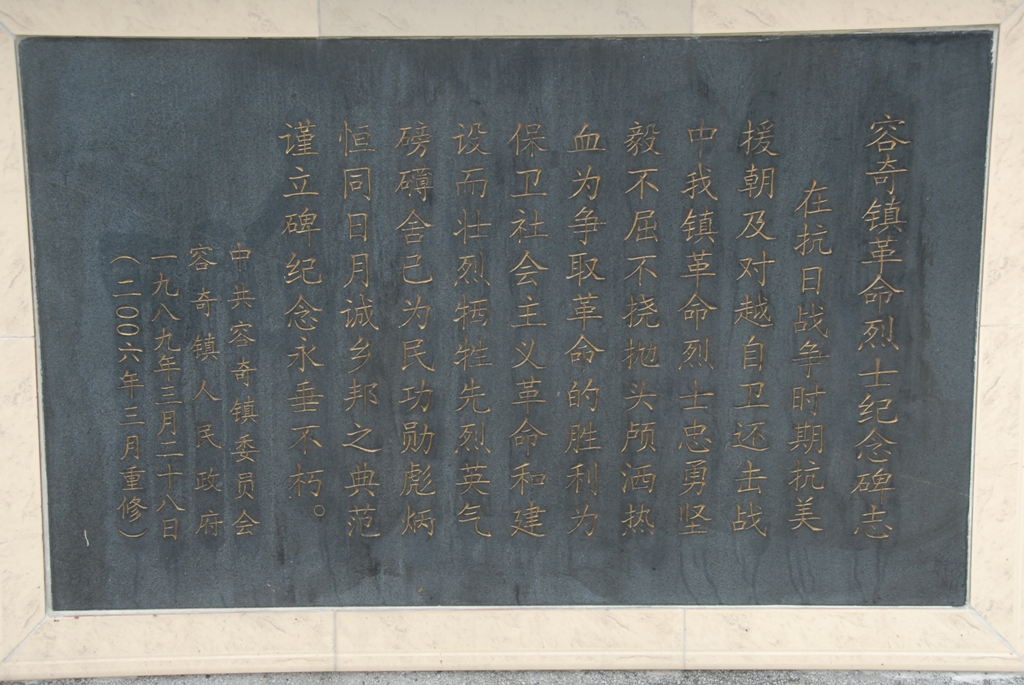 容奇镇革命烈士纪念碑志
在抗日战争时期抗美
援朝及对越自卫还击战
中我镇革命烈士忠勇坚
毅不屈不挠抛头颅洒热
血为争取革命的胜利为
保卫社会主义革命和建
设而壮烈牺牲先烈英气
磅礴舍己为民功勋彪炳
恒同日月诚乡邦之典范
谨立碑纪念永垂不朽。
中共容奇镇委员会
容奇镇人民政府
一九八九年三月二十八日
（二00六年三月重修）